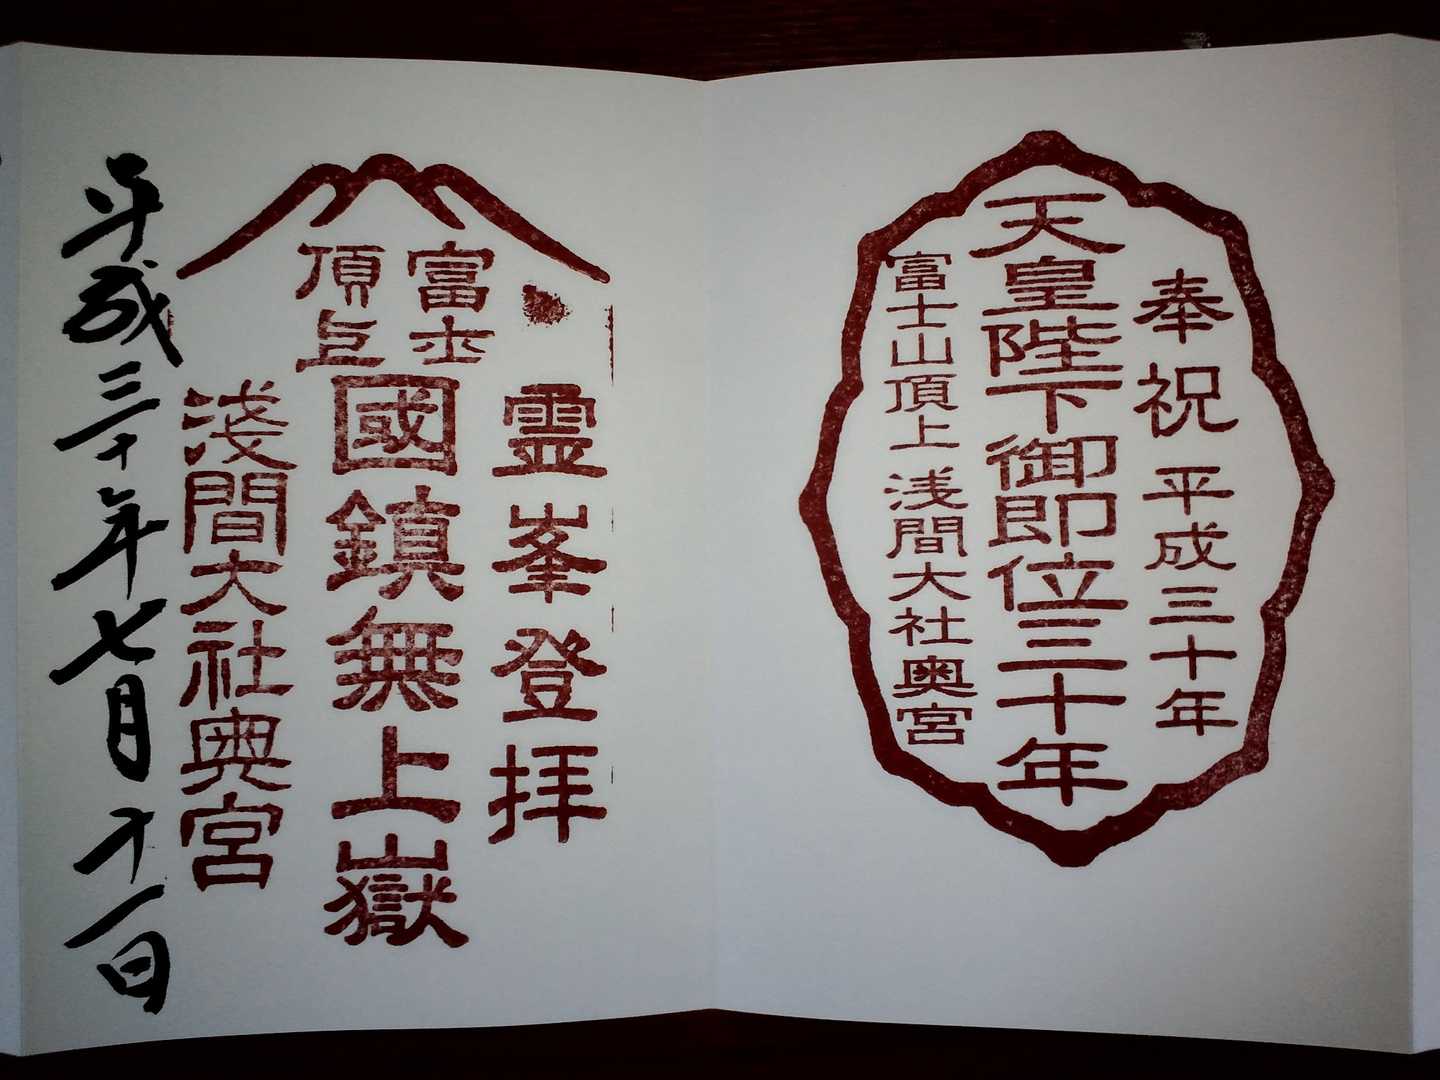 奉祝 平成三十年
天皇陛下御即位三十年
富士山頂上 浅間大社奥宮
霊峯登拝
富士
頂上
國鎮無上嶽
浅間大社奥宮
平成三十年七月十一日